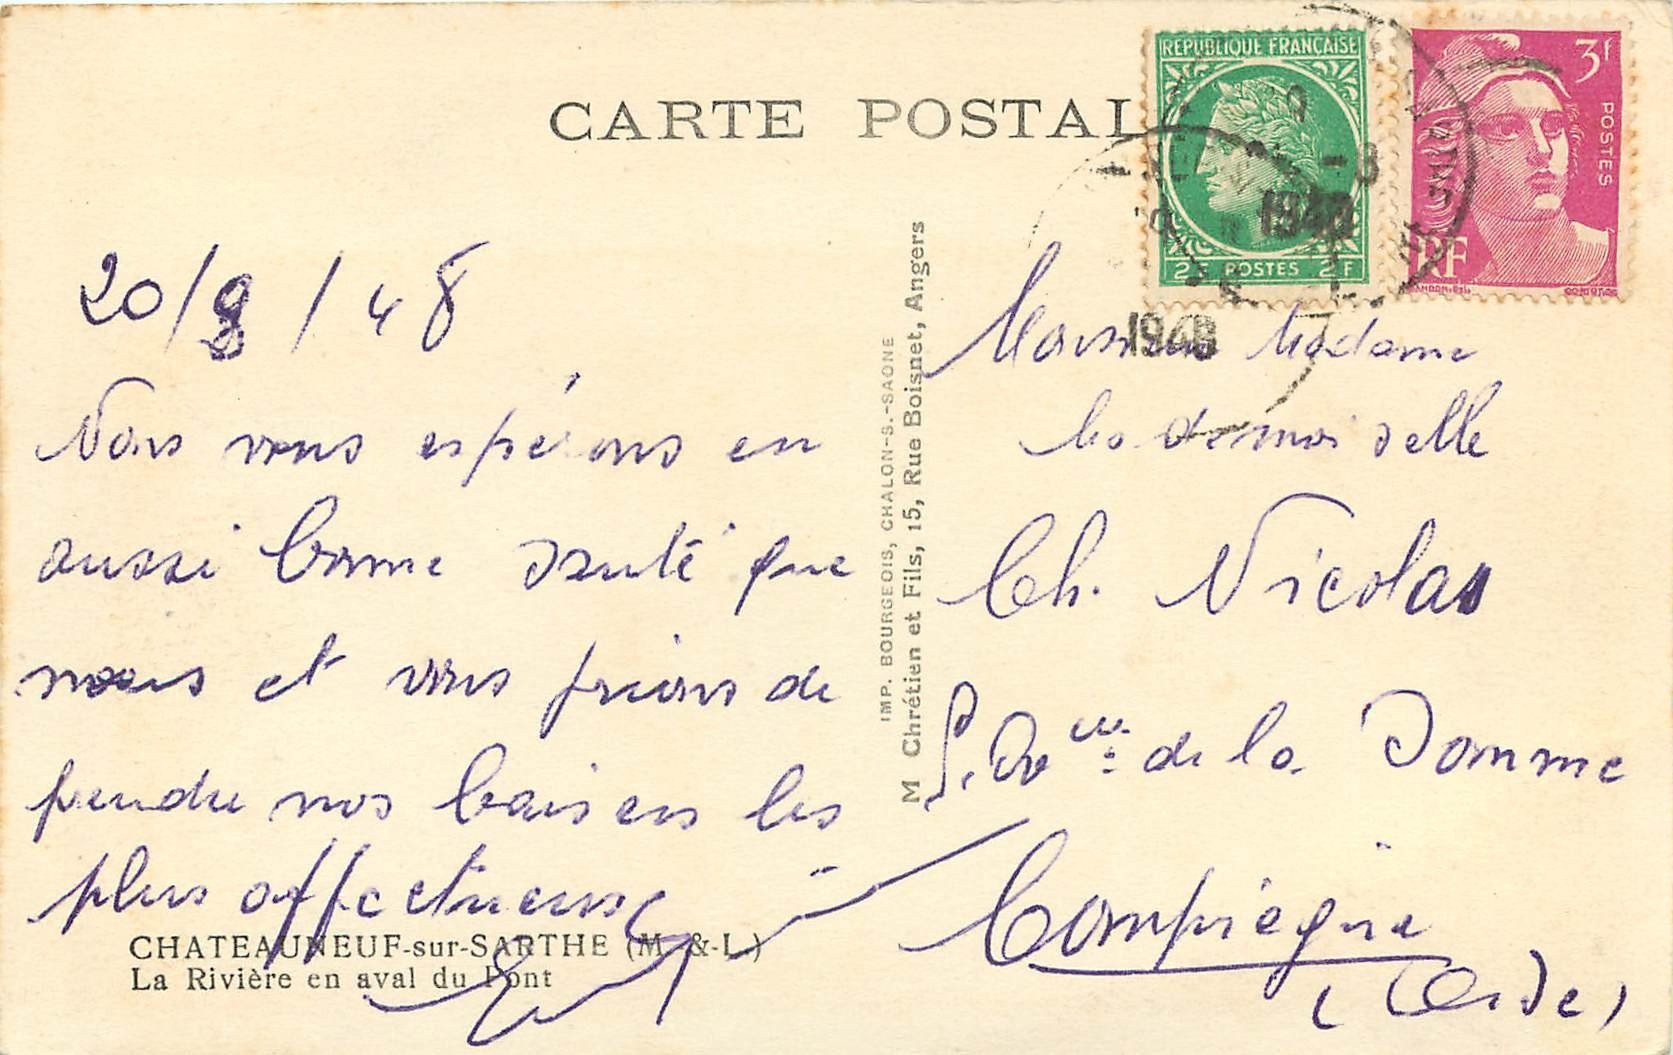 CARTE POSTAL
REPUBLIQUE FRANÇAISE
2F POSTES 2F
3f
POSTES
RF
1948
1948
20/8/48
Nous vous espérons en
aussi bonne santé que
nous et vous prions de
prendre nos baisers les
plus affectueux
CHATEAUNEUF-sur-SARTHE (M.-&-L.)
La Rivière en aval du Pont
IMP. BOURGEOIS, CHALON-S.-SAONE
M Chrétien et Fils, 15, Rue Boisnet, Angers
Monsieur Madame
Mademoiselle
Ch. Nicolas
de la Somme
Compiègne
(Oise)